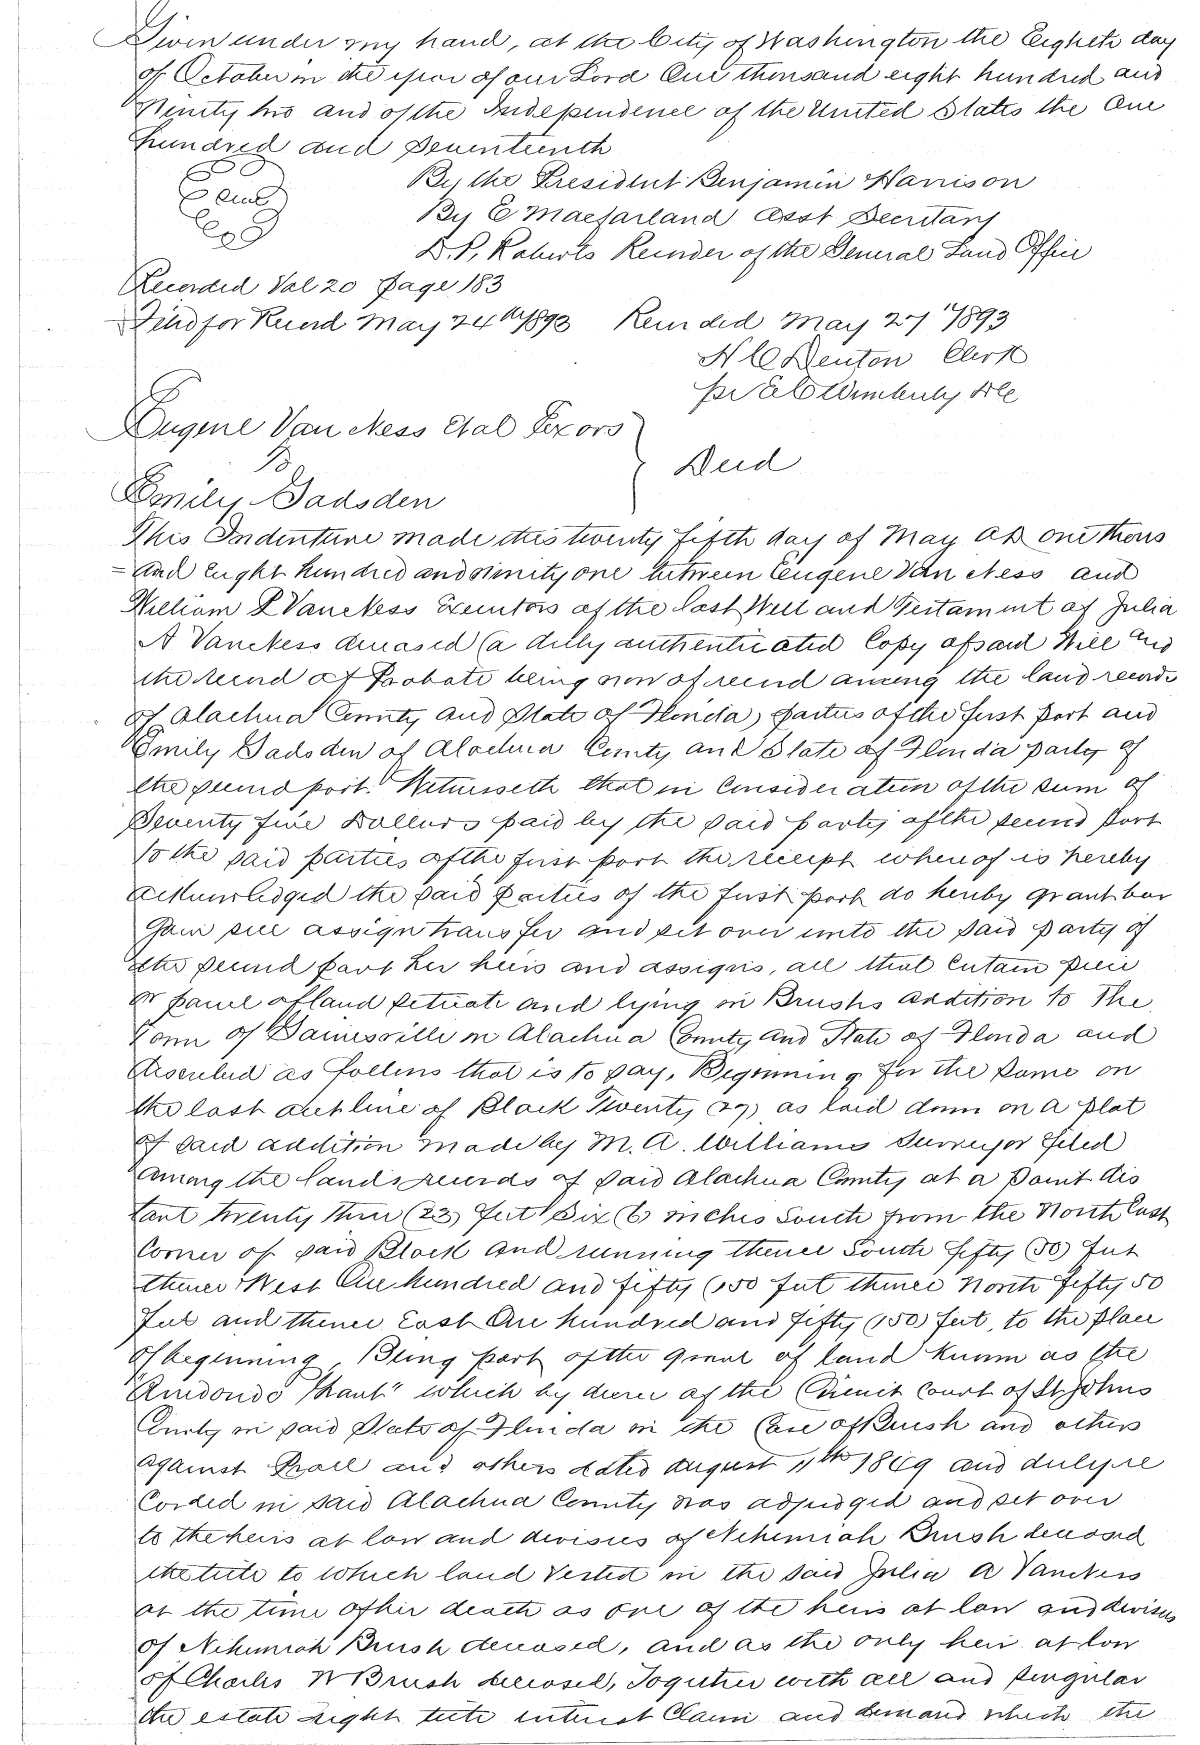 Given under my hand, at the City of Washington the Eighth day
of October in the year of our Lord One thousand eight hundred and
Ninety two and of the Independence of the United States the One
hundred and Seventeenth
By the President Benjamin Harrison
By E Macfarland Asst Secretary
D.P. Roberts Recorder of the General Land Office
Recorded Vol 20 Page 183
Filed for Record May 24th 1893 Recorded May 27th 1893
H C Denton Clerk
pr E C Wimberly DC
Eugene Van Ness Etal Exors
To
Deed
Emily Gadsden
This Indenture made this twenty fifth day of May AD one thous
=and Eight hundred and ninity one between Eugene Van Ness and
William P Van Ness Executors of the last Will and Testament of Julia
A Van Ness deceased (a dully authenticated Copy of said Will and
the record of Probate being now of record among the land records
of Alachua County and State of Florida) parties of the first part and
Emily Gadsden of Alachua County and State of Florida party of
the second part. Witnesseth that in Consideration of the sum of
Seventy five Dollars paid by the said party of the second part
to the said parties of the first part the receipt whereof is hereby
acknowledged the said parties of the first part do hereby grant bar
gain sell assign transfer and set over unto the said party of
the second part her heirs and assigns, all that certain piece
or parcel of land situate and lying in Brushs addition to The
Town of Gainesville in Alachua County and State of Florida and
described as follows that is to say, Beginning for the same on
the last out line of Block Twenty (29) as laid down on a plat
of said addition made by M. A. Williams Surveyor filed
among the lands records of said Alachua County at a point dis
tant twenty three (23) feet Six (6) inches South from the North East
Corner of said Block and running thence South fifty (50) feet
thence West One hundred and fifty (150 feet thence North fifty 50
feet and thence East One hundred and fifty (150) feet, to the place
of beginning, Being part of the grant of land known as the
"Arredondo Grant" which by decree of the Circuit Court of St Johns
County in said State of Florida in the Case of Brush and others
against Hall and others dated August 11th 1849 and duly re
corded in said Alachua County was adjudged and set over
to the heirs at law and devisees of Nehemiah Brush deceased
the title to which land vested in the said Julia A Van Ness
at the time of her death as one of the heirs at law and devisees
of Nehemiah Brush deceased, and as the only heir at law
of Charles N Brush deceased, Together with all and singular
the estate right title interest Claim and demand which the